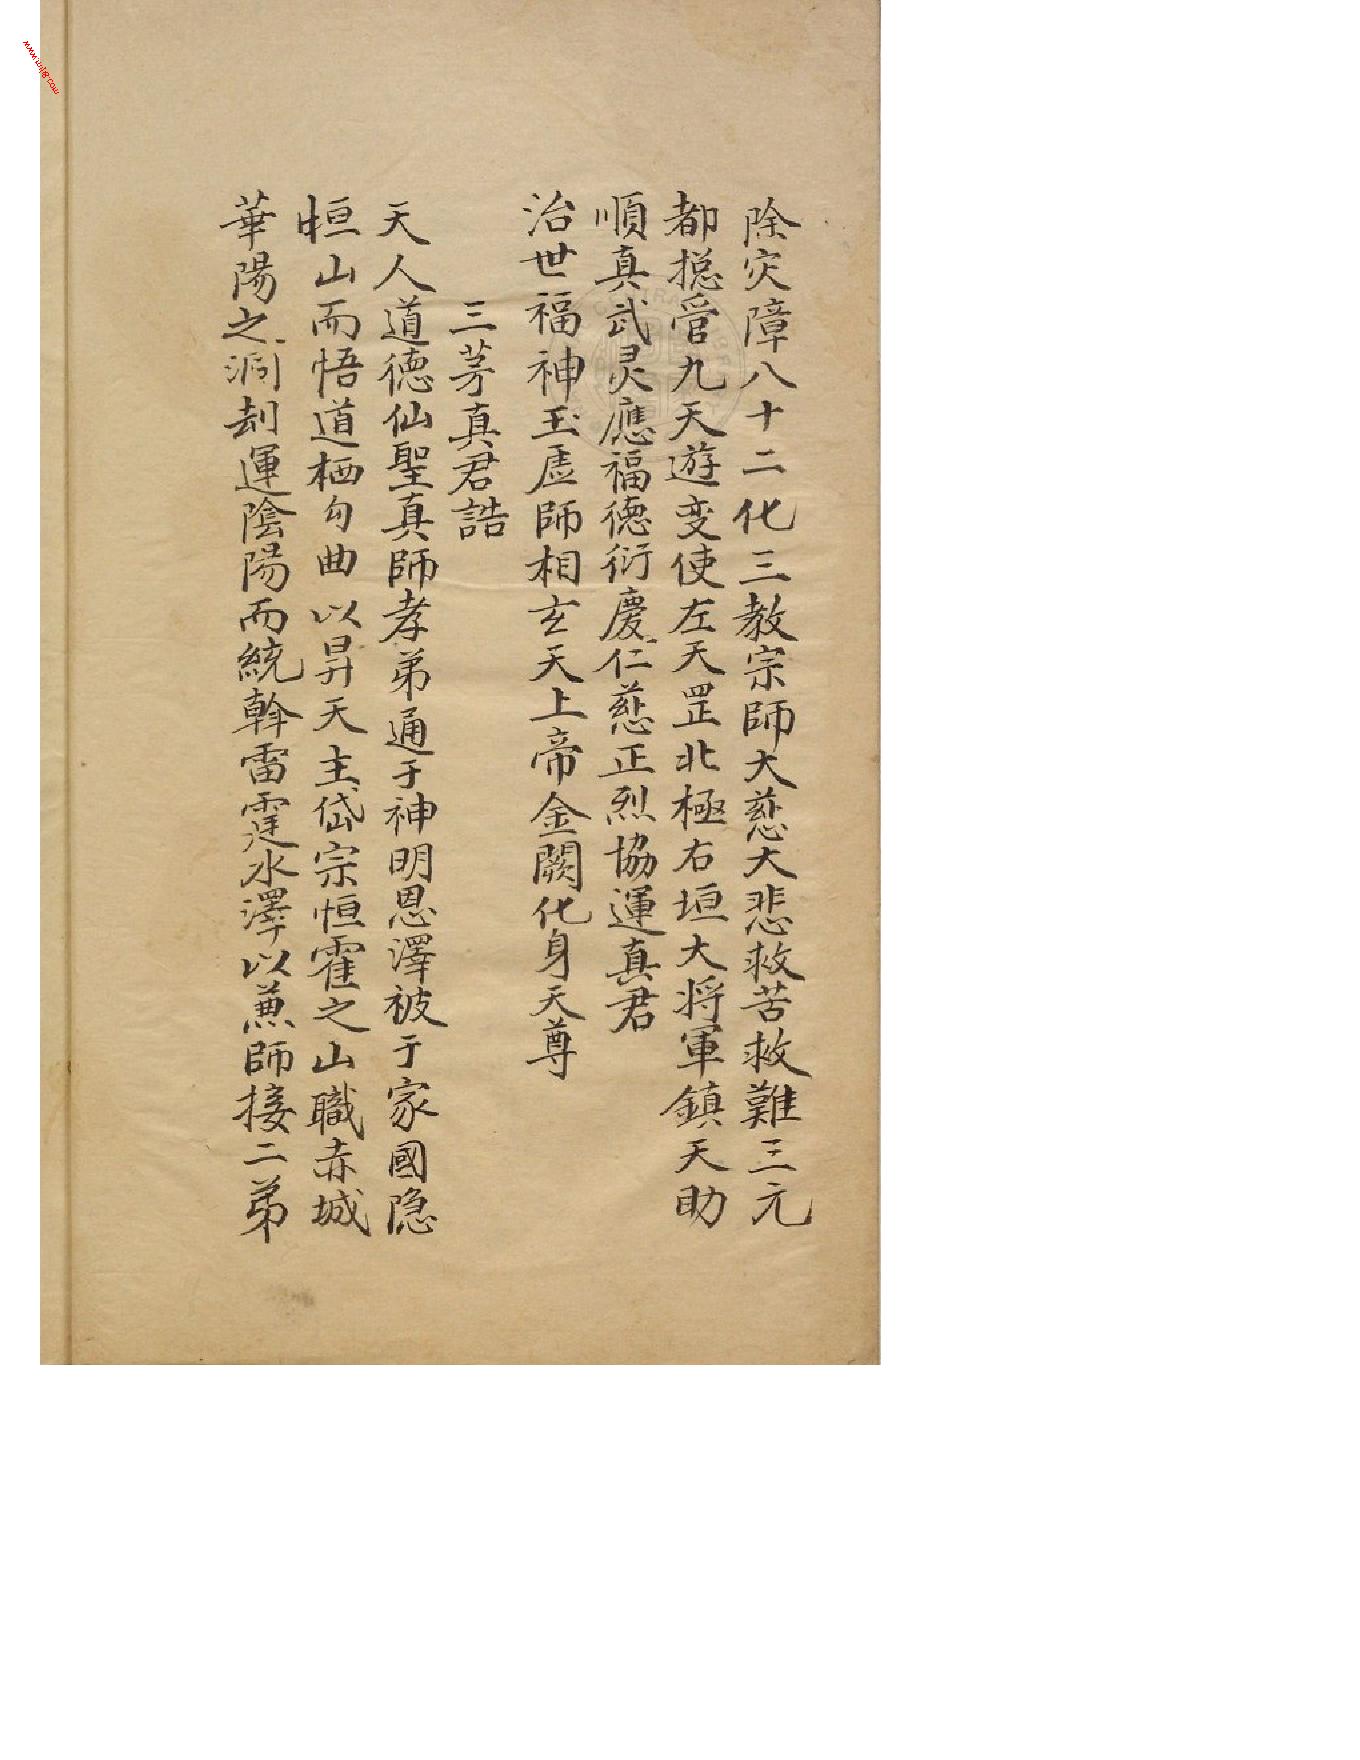 除灾障八十二化三教宗師大慈大悲救苦救難三元
都摠管九天遊变使左天罡北極右垣大将軍鎮天助
順真武灵應福德衍慶仁慈正烈協運真君
治世福神玉虛師相玄天上帝金闕化身天尊
三茅真君誥
天人道德仙聖真師孝弟通于神明恩澤被于家國隐
恒山而悟道栖勾曲以昇天主岱宗恒霍之山職赤城
華陽之洞刼運陰陽而統斡雷霆水澤以兼師接二弟
www.mlbj8.com